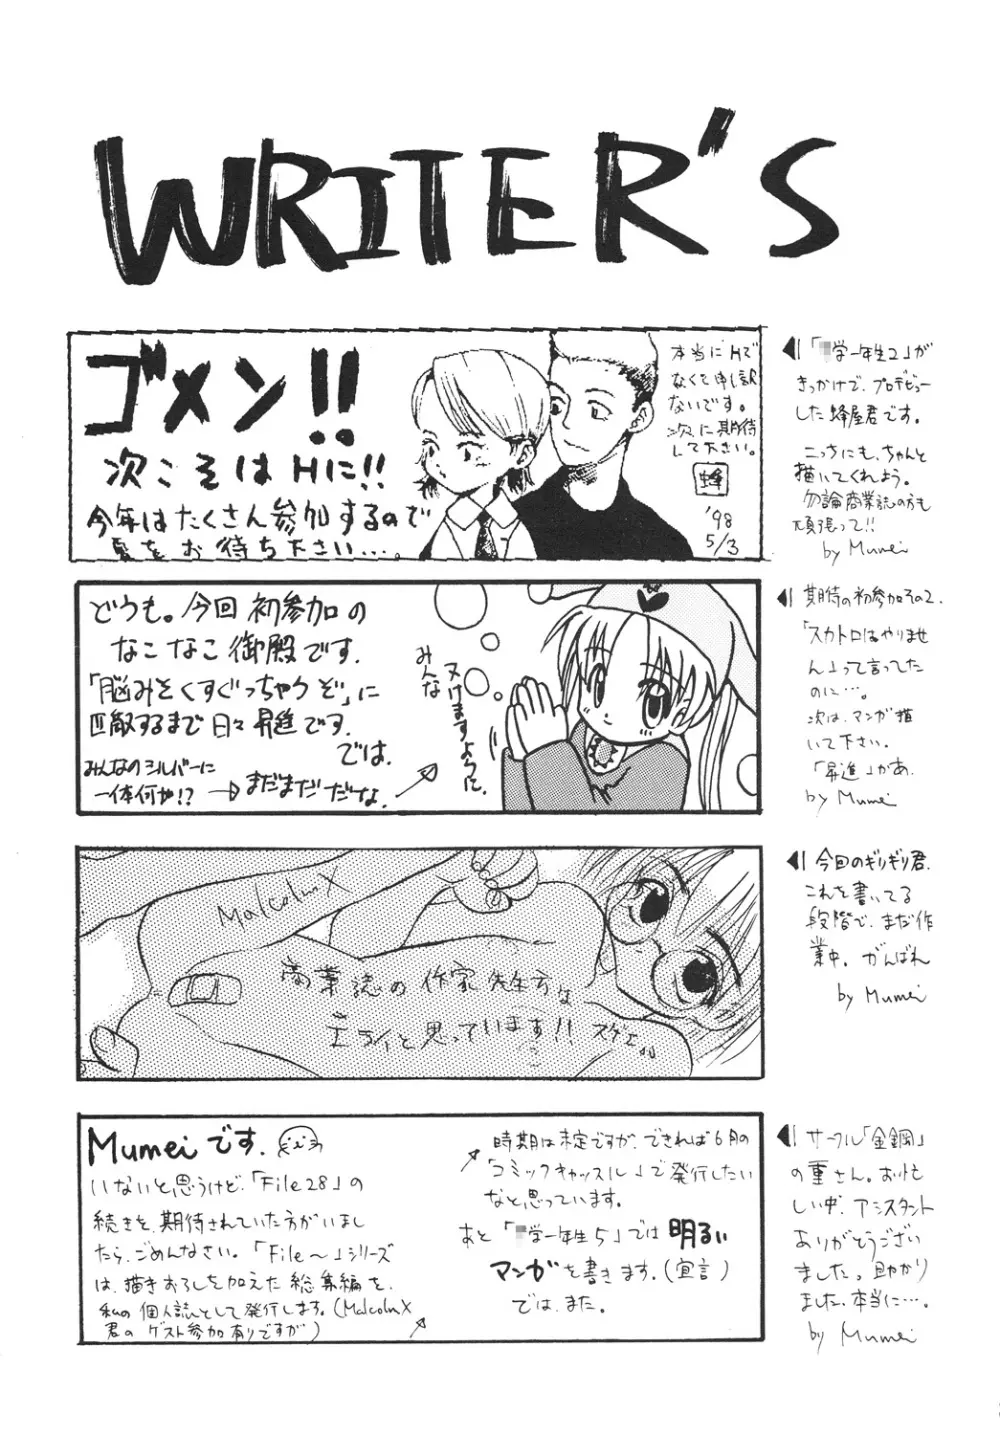 WRITER'S
ゴメン!!
次こそはHに!!
今年はたくさん参加するので
夏をお待ち下さい…。
本当にHで
なくて申し訳
ないです。
次に期待
して下さい。
蜂
'98
5/3
学一年生2」が
きっかけで、プロデビュー
した蜂屋君です。
こっちにも、ちゃんと
描いてくれよう。
勿論商業誌の方も
頑張って!!
by Mumei
どうも。今回初参加の
なこなこ御殿です。
「脳みそくすぐっちゃうぞ」に
匹敵するまで日々昇進です。
では。
みんなのシルバーに
一体何が!?
→まだまだだな。
みんな
ヌけますように。
期待の初参加その2.
「スカトロはやりませ
ん」って言ってた
のに…。
次は、マンガ描
いて下さい。
「昇進」かぁ.
by Mumei
Malcolm X
商業誌の作家先生方は
エライと思っています!!スゲェ。。
今回のギリギリ君.
これを書いてる
段階で、まだ作
業中。がんばれ
by Mumei
Mumeiです.
いないと思うけど、「File28」の
続きを、期待されていた方がいまし
たら、ごめんなさい。「File〜」シリーズ
は、描きおろしを加えた総集編を、
私の個人誌として発行します。(MalcolmX
君のゲスト参加有りですが)
時期は未定ですが、できれば6月の
「コミックキャッスル」で発行したい
なと思っています。
あと「学一年生5」では明るい
マンガを書きます。(宣言)
では、また。
サークル「金鋼」
の重さん。お忙
しい中、アシスタント
ありがとうござい
ました。助かり
ました、本当に…。
by Mumei